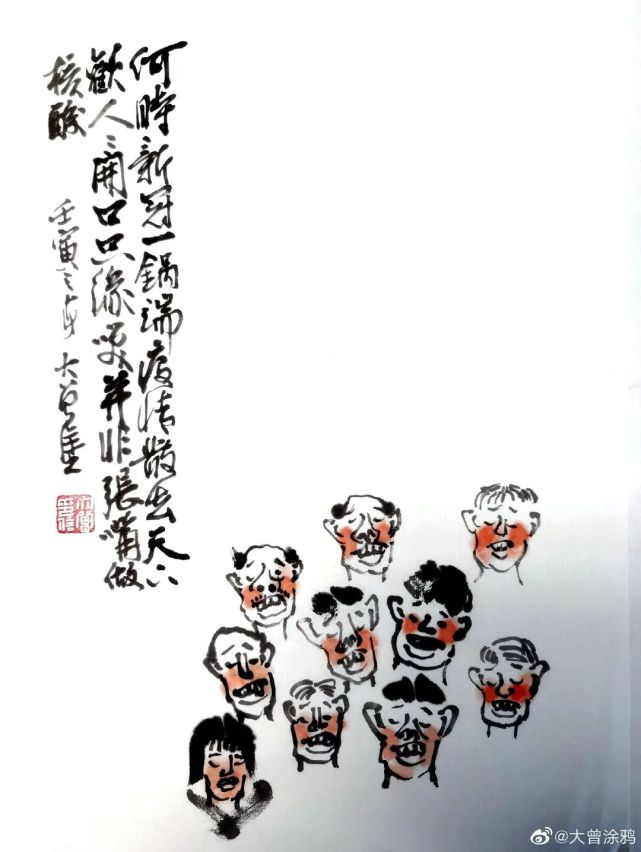 何時新冠一鍋端疫情散去天下
歡人〻開口只緣咲并非張嘴做
核酸
壬寅之 大曾
@大曾涂鸦